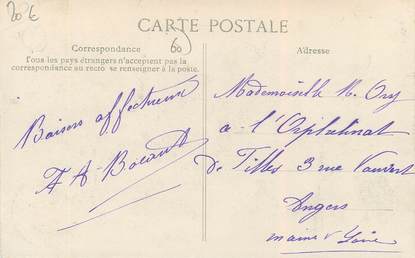 20 €
CARTE POSTALE
Correspondance
Tous les pays étrangers n'acceptent pas la
correspondance au recto se renseigner à la poste.
Adresse
Baisers affectueux
Mademoiselle
à l'Orphelinat
de Filles 3 rue Vauvert
Angers
Maine & Loire